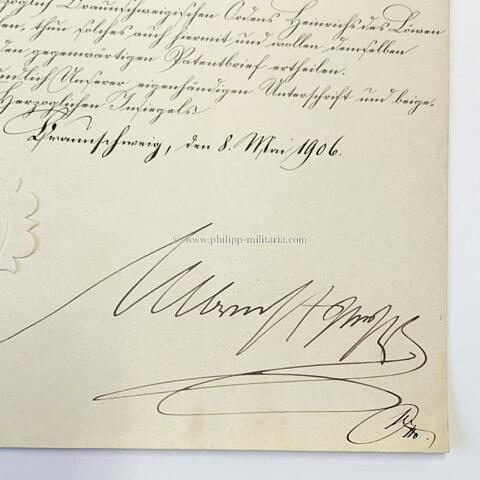 zoglich Braunschweigischen Ordens Heinrichs des Löwen
hen, thun solches auch hiermit und wollen demselben
den gegenwärtigen Patentbrief ertheilen.
undlich Unserer eigenhändigen Unterschrift und beige-
Herzoglichen Insiegels.
Braunschweig, den 8. Mai 1906.
© www.philipp-militaria.com
Albrecht